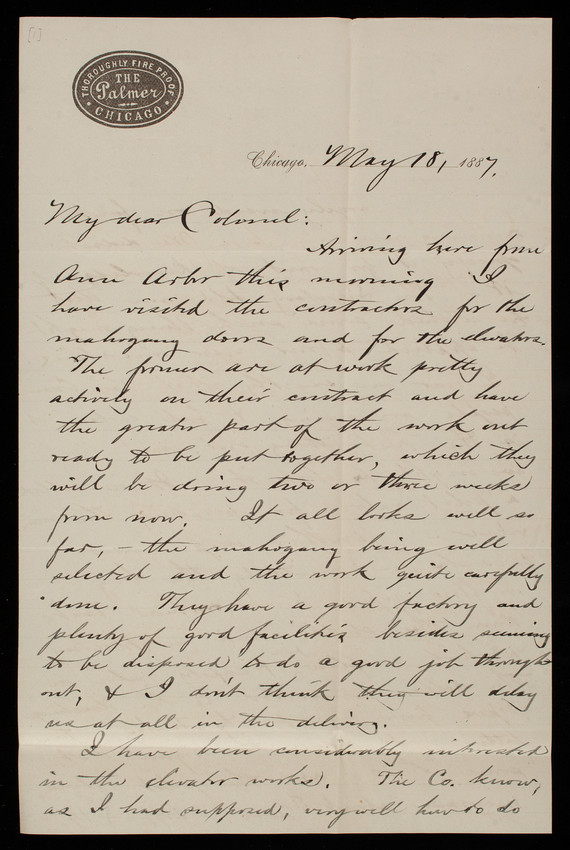 [1]
THOROUGHLY FIRE PROOF
THE
Palmer
CHICAGO
Chicago, May 18, 1887.
My dear Colonel:
Arriving here from
Ann Arbor this morning I
have visited the contractors for the
mahogany doors and for the elevators.
The former are at work pretty
actively on their contract and have
the greater part of the work out
ready to be put together, which they
will be doing two or three weeks
from now. It all looks well so
far, – the mahogany being well
selected and the work quite carefully
done. They have a good factory and
plenty of good facilities besides seeming
to be disposed to do a good job through-
out, & I don't think they will delay
us at all in the delivery.
I have been considerably interested
in the elevator works. The Co. know,
as I had supposed, very well how to do